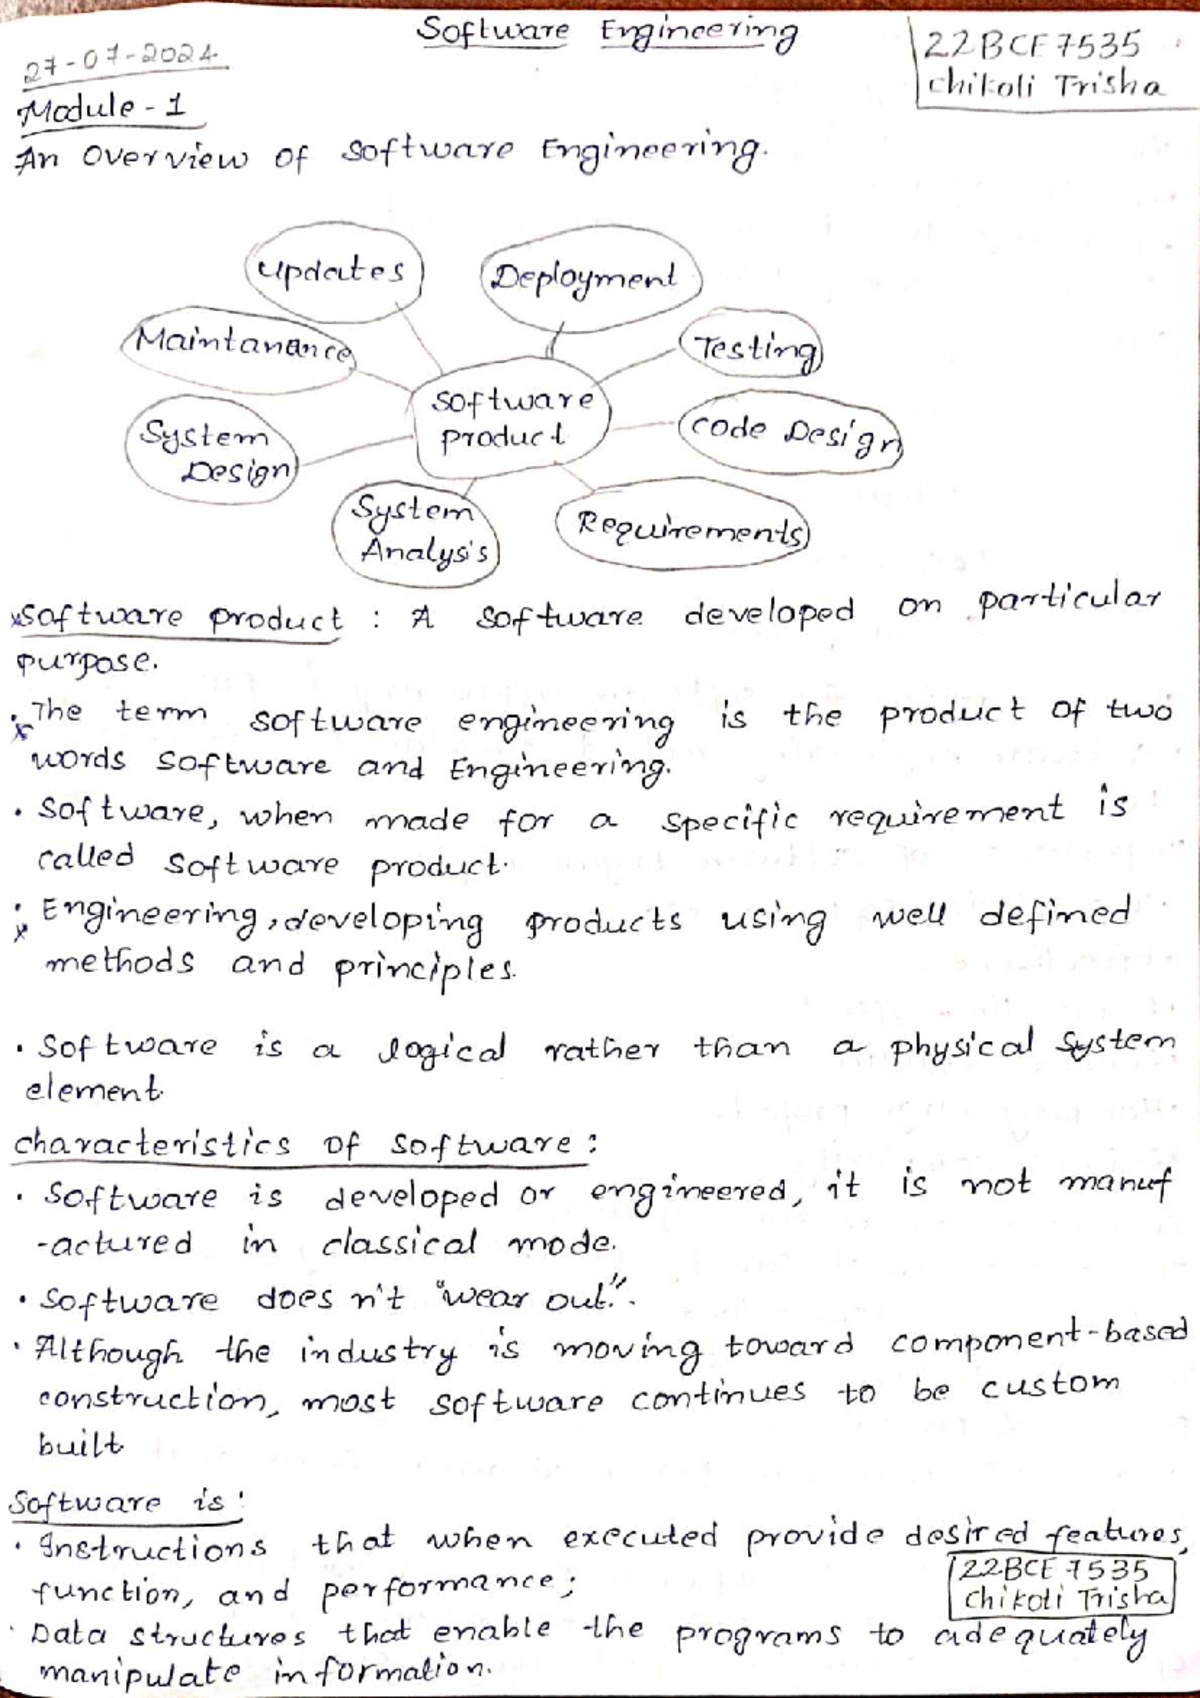 Software Engineering
22BCE7535
chikoli Trisha
27-07-2024
Module - 1
An Overview of Software Engineering.
updates
Deployment
Maintanance
Testing
Software
product
code Design
System
Design
System
Analysis
Requirements
Software product : A software developed on particular
purpose.
. The term software engineering is the product of two
words software and Engineering.
. Software, when made for a specific requirement is
called software product.
: Engineering, developing products using well defined
methods and principles.
. Software is a logical rather than a physical system
element.
characteristics of software :
. Software is developed or engineered, it is not manuf
-actured in classical mode.
. Software does n't "wear out".
. Although the industry is moving toward component-based
construction, most software continues to be custom
built.
Software is :
. Instructions that when executed provide desired features,
function, and performance;
22BCE7535
chikoti Trisha
. Data structures that enable the programs to adequately
manipulate information.